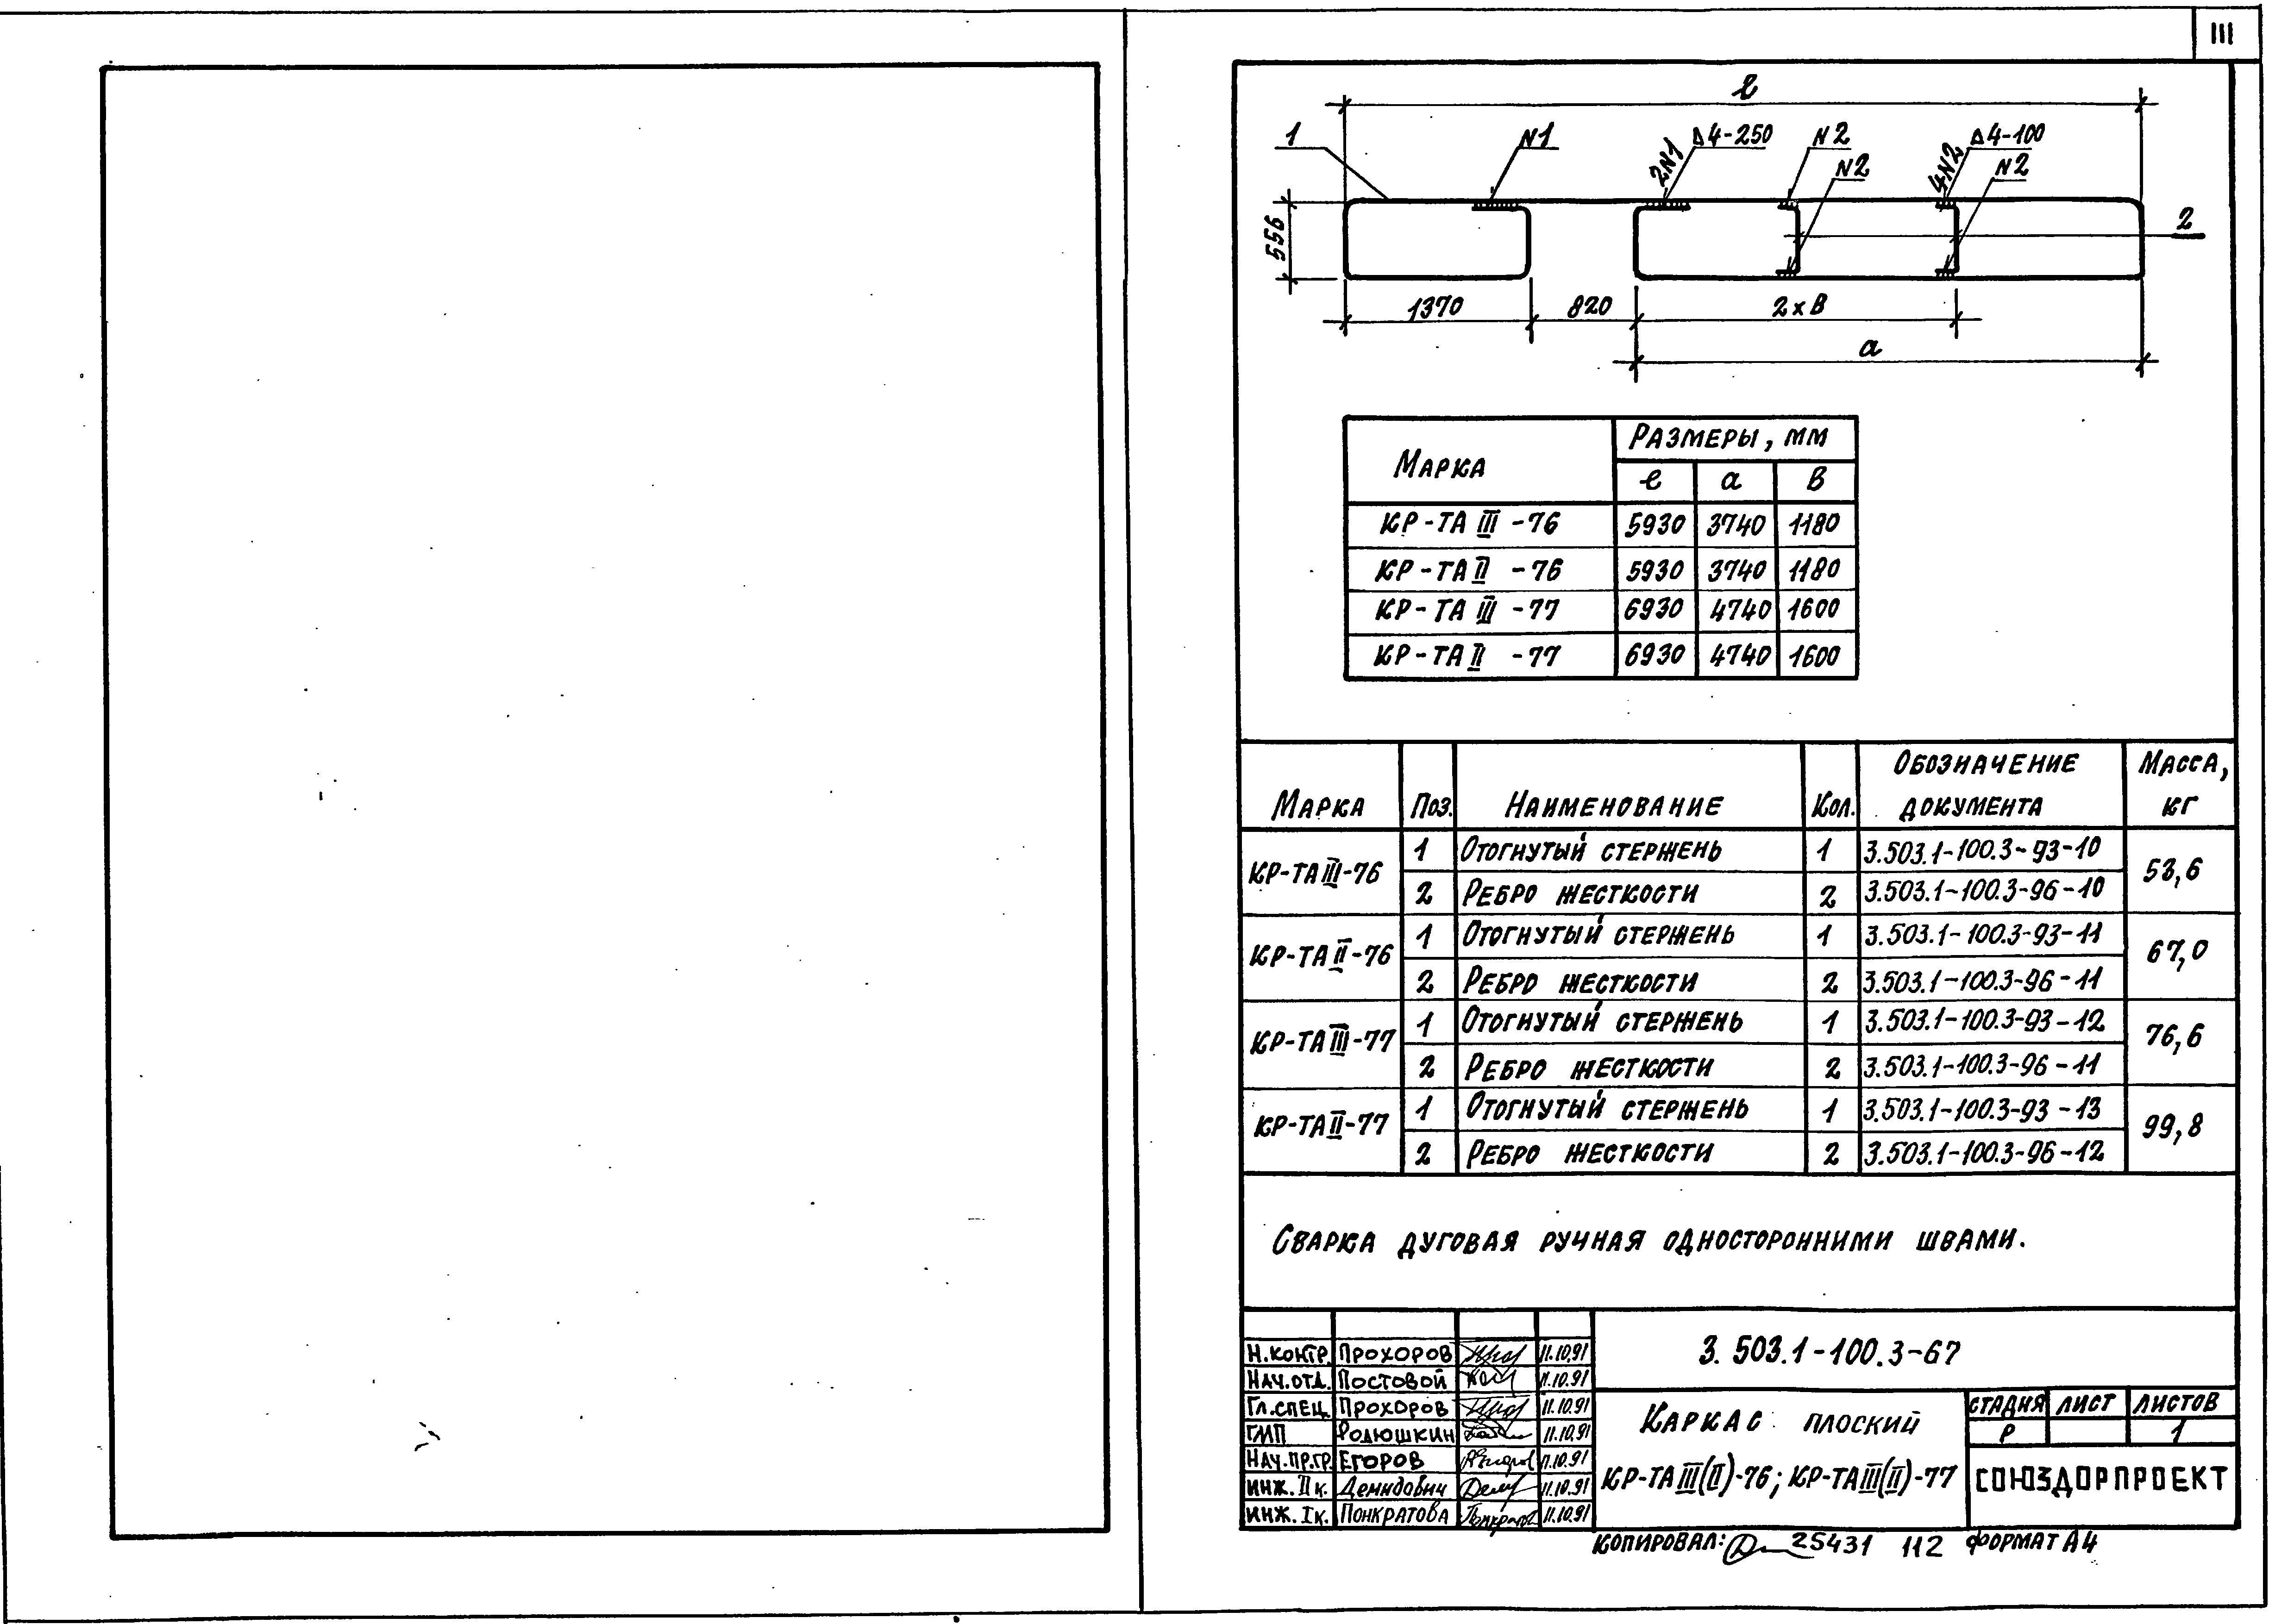 111
ℓ
1
N1
2N1
Δ4-250
N2
N2
4N2
Δ4-100
N2
2
556
1370
820
2×В
а
Марка
Размеры, мм
ℓ а В
КР-ТАIII-76 5930 3740 1180
КР-ТАII-76 5930 3740 1180
КР-ТАIII-77 6930 4740 1600
КР-ТАII-77 6930 4740 1600
Марка Поз. Наименование Кол. Обозначение документа Масса, кг
КР-ТАIII-76 1 Отогнутый стержень 1 3.503.1-100.3-93-10 53,6
2 Ребро жесткости 2 3.503.1-100.3-96-10
КР-ТАII-76 1 Отогнутый стержень 1 3.503.1-100.3-93-11 67,0
2 Ребро жесткости 2 3.503.1-100.3-96-11
КР-ТАIII-77 1 Отогнутый стержень 1 3.503.1-100.3-93-12 76,6
2 Ребро жесткости 2 3.503.1-100.3-96-11
КР-ТАII-77 1 Отогнутый стержень 1 3.503.1-100.3-93-13 99,8
2 Ребро жесткости 2 3.503.1-100.3-96-12
Сварка дуговая ручная односторонними швами.
Н.контр. Прохоров 11.10.91
Нач.отд. Постовой 11.10.91
Гл.спец. Прохоров 11.10.91
ГИП Родюшкин 11.10.91
Нач.пр.гр. Егоров 11.10.91
инж. II к. Демидович 11.10.91
инж. I к. Понкратова 11.10.91
3.503.1-100.3-67
Каркас плоский
КР-ТАIII(II)-76; КР-ТАIII(II)-77
стадия лист листов
Р 1
СОЮЗДОРПРОЕКТ
Копировал: 25431 112 Формат А4